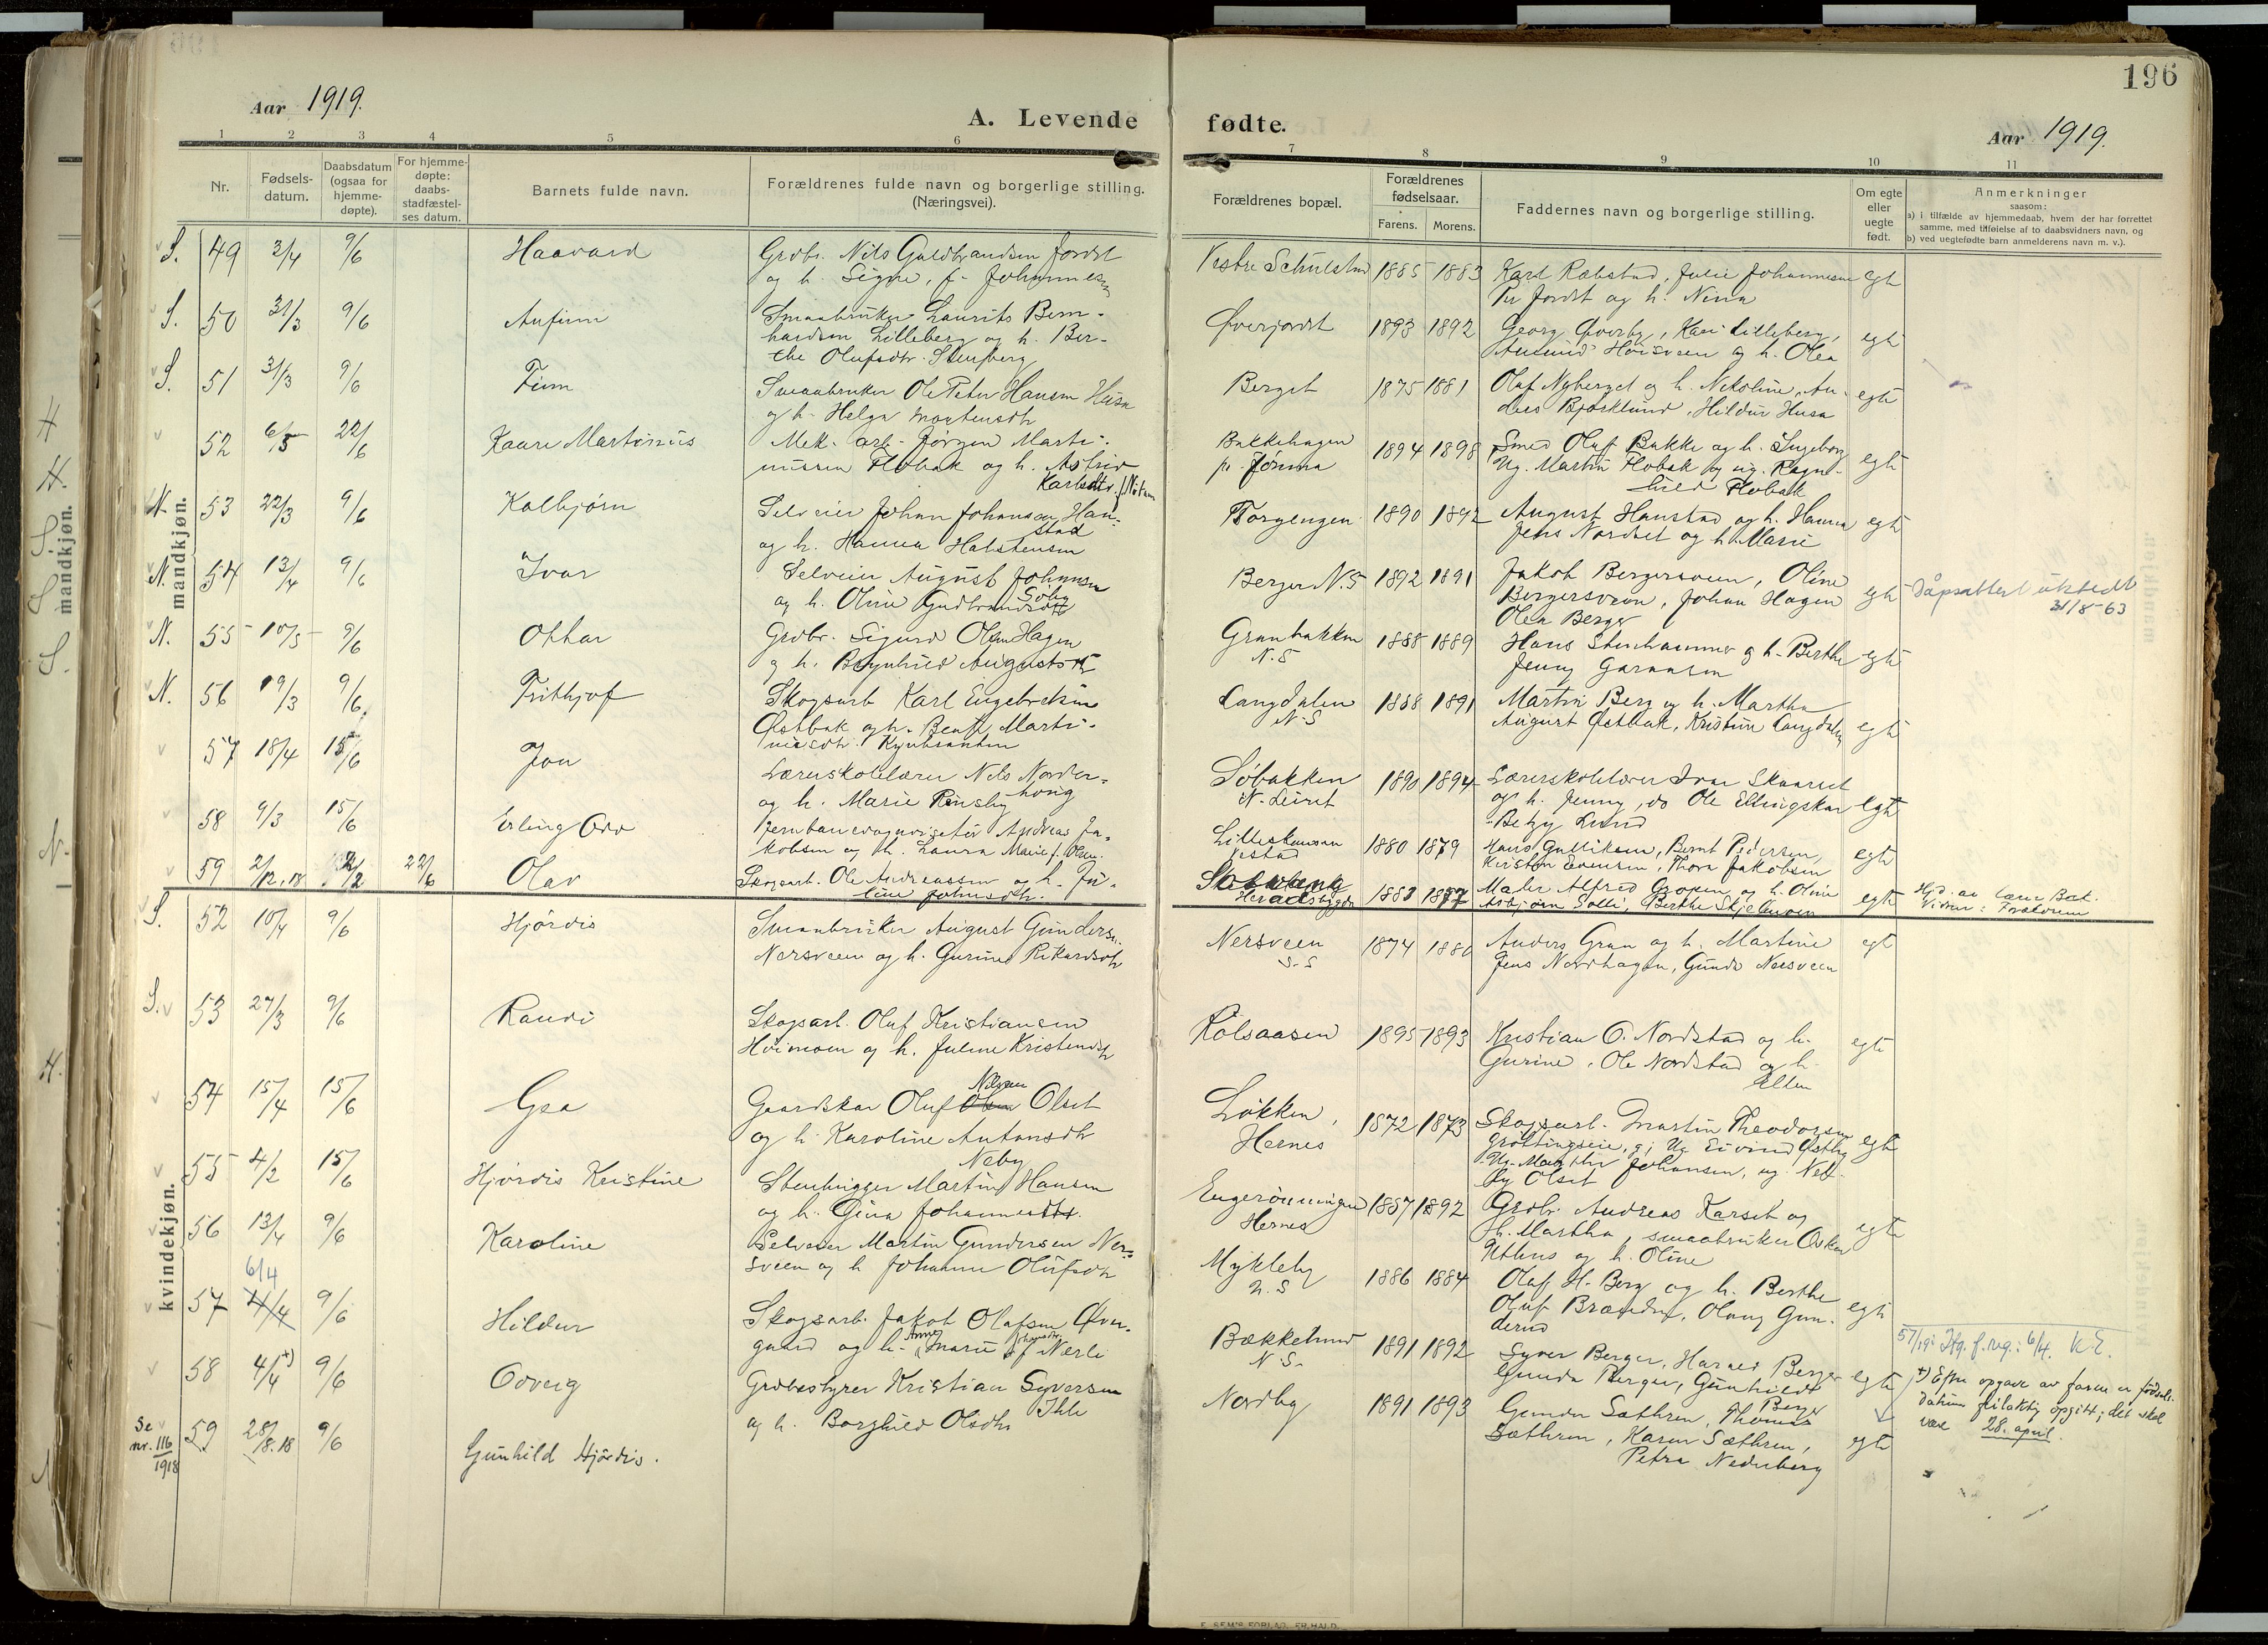 196
Aar 1919.
A. Levende fødte.
Aar 1919.
1 2 3 4 5 6 7 8 9 10 11
Nr.
Fødsels-
datum.
Daabsdatum
(ogsaa for
hjemme-
døpte).
For hjemme-
døpte:
daabs-
stadfæstel-
ses datum.
Barnets fulde navn.
Forældrenes fulde navn og borgerlige stilling.
(Næringsvei).
Forældrenes bopæl.
Forældrenes
fødselsaar.
Farens. Morens.
Faddernes navn og borgerlige stilling.
Om egte
eller
uegte
født.
Anmerkninger
saasom:
a) i tilfælde av hjemmedaab, hvem der har forrettet
samme, med tilføielse af to daabsvidners navn, og
b) ved uegtefødte barn anmelderens navn m. v.).
mandkjøn.
S. 49 3/4 9/6 Haavard
Grdbr. Nils Guldbrandsen Jordet
og h. Signe, f. Johannesen
Vestre Schulstad 1885 1883
Karl Ræbstad, Julie Johannesen
Per Jordet og h. Nina
egte
S. 50 31/3 9/6 Anfinn
Smaabruker Laurits Bern-
hardsen Lilleberg og h. Ber-
the Olufsdtr. Stenberg
Øverjordet 1893 1892
Georg Øverby, Kari Lilleberg,
Amund Høisveen og h. Olea
egte
S. 51 31/3 9/6 Finn
Smaabruker Ole Peter Hansen Husa
og h. Helga Mortensdtr
Berget 1875 1881
Olaf Nyberget og h. Nikoline, An-
ders Bjørklund, Hildur Husa
egte
52 6/5 22/6 Kaare Martinius
Mek. arb. Jørgen Marti-
niusen Flobak og h. Astrid
Karlsdtr. f. Nötum
Bakkehagen
pr. Jømna 1894 1898
Smed Oluf Bakke og h. Ingeborg
Ug. Martin Flobak og ug. Ragn-
hild Flobak
egte
N. 53 22/3 9/6 Kolbjørn
Selveier Johan Johansen Han-
stad
og h. Hanna Halstensen
Torgengen 1890 1892
August Hanstad og h. Hanna
Jens Nordset og h. Marie
egte
N. 54 13/4 9/6 Ivar
Selveier August Johansen
Søby
og h. Oline Gudbrandsdtr
Berger N.S 1892 1891
Jakob Bergersveen, Oline
Bergersveen, Johan Hagen
Olea Berger
egte
Dåpsattest utstedt
31/8-63
N. 55 10/5 9/6 Othar
Grdbr. Sigurd Olsen Hagen
og h. Brynhild Augustsdtr
Granbakken
N.S 1888 1889
Hans Stenhammer og h. Berthe
Jenny Garaasen
egte
N. 56 19/3 9/6 Frithjof
Skogsarb Karl Engebretsen
Østbak og h. Berthe Marti-
niusdtr. Kynbraaten
Langdalen
N-S 1888 1891
Martin Berg og h. Martha
August Østbak, Kristine Langdalen
egte
57 18/4 15/6 Jon
Lærerskolelærer Nils Norder-
houg
og h. Marie Rensby
Søbakken
N. Leiret 1890 1894
Lærerskolelærer Ivar Skaaret
og h. Jenny, do Ole Ellingskar
Betzy Lund
egte
58 9/3 15/6 Erling Odd
Jernbanevognvisitør Andreas Ja-
kobsen og h. Laura Marie f. Olsen.
Lilleskansen
Vestad 1880 1879
Hans Gulliksen, Bernt Pedersen,
Kirsten Evensen, Thora Jakobsen
egte
59 2/12.18 22/2 22/6 Olav
Skogsarb. Ole Andreassen og h. Ju-
line Johnsdtr.
Heradsbygda 1883 1877
Maler Alfred Gropen og h. Oline
Asbjørn Solli, Berthe Skjelmoen
egte
Hjd. av Lærer Bæk.
Vidner: Forældrene
kvindekjøn.
S. 52 10/4 9/6 Hjördis
Smaabruker August Gunders.
Nersveen og h. Gurine Rikardsdtr
Nersveen
S-S 1874 1880
Anders Gran og h. Martine
Jens Nordhagen, Gunda Nersveen
egte
S. 53 27/3 9/6 Randi
Skogsarb. Oluf Kristiansen
Høimoen og h. Juline Kristensdtr
Kolsaasen 1895 1893
Kristian O. Nordstad og h.
Gurine, Ole Nordstad og h.
Ellen
egte
54 15/4 15/6 Gea
Gaardskar Oluf Nilsen Olset
og h. Karoline Antonsdtr
Løkken,
Hernes 1872 1873
Skogsarb. Martin Theodorsen
Grøttingseie, g; Ug. Eivind Østby
Ug. Marthe Johansen, ug Nel-
ly Olset
egte
55 4/2 15/6 Hjördis Kristine
Neby
Stenhugger Martin Hansen
og h. Gina Johannesdtr.
Engerönningen
Hernes 1857 1892
Grdbr. Andreas Karset og
h. Martha, smaabruker Oskar
Uthus og h. Oline
egte
56 13/4 9/6 Karoline
Selveier Martin Gundersen Ner-
sveen og h Johanne Olufsdtr
Mykleby
N.S 1886 1884
Olaf H. Berg og h. Berthe
Oluf Brænden, Olaug Gun-
derud
egte
57 6/4 4/4 9/6 Hildur
Skogsarb. Jakob Olafsen Øver-
gaard og h. Anne Marie f Nerli
Bækkelund
N S- 1891 1892
Syver Berger, Harald Berger
Gunda Berger, Gunhild
Berger
egte
57/19: Iflg. f.reg.: 6/4. K E.
58 4/4 +) 9/6 Oddveig
Grdbestyrer Kristian Syversen
Ihle
og h. Borghild Olsdtr
Nordby 1891 1893
Gunda Sæthren, Thomas
Sæthren, Karen Sæthren,
Petra Nederberg
egte
+) Efter opgave av faren er fødsels-
datum feilaktig opgitt; det skal
være 28. april.
Se
nr. 116
1918
59 28/8.18 9/6 Gunhild Hjördis.